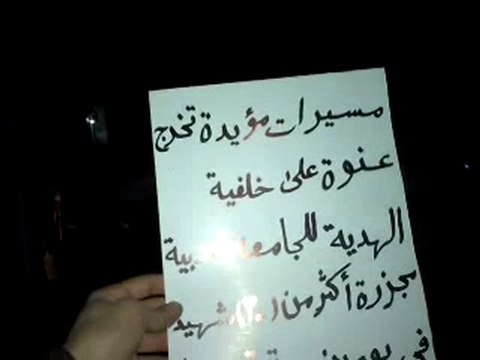 مسيرات مؤيدة تخرج
عنوة على خلفية
الهدية للجامعة
مجزرة أكثر من شهيد
في